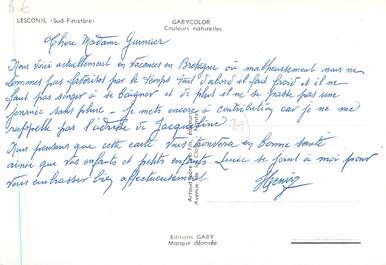 6€
LESCONIL (Sud-Finistère)
GABYCOLOR
Couleurs naturelles
Chère Madame
Nous voici actuellement en vacances en Bretagne où malheureusement nous ne
sommes pas favorisés par le temps tout d'abord il fait froid et il ne
faut pas songer à se baigner et de plus il ne se passe pas une
journée sans pluie. Je mets encore à contribution car je ne me
rappelle pas l'adresse de Jacqueline
Nous pensons que cette carte vous trouvera en bonne santé
ainsi que vos enfants et petits enfants. se joint à moi pour
vous embrasser bien affectueusement.
Editions GABY
Marque déposée